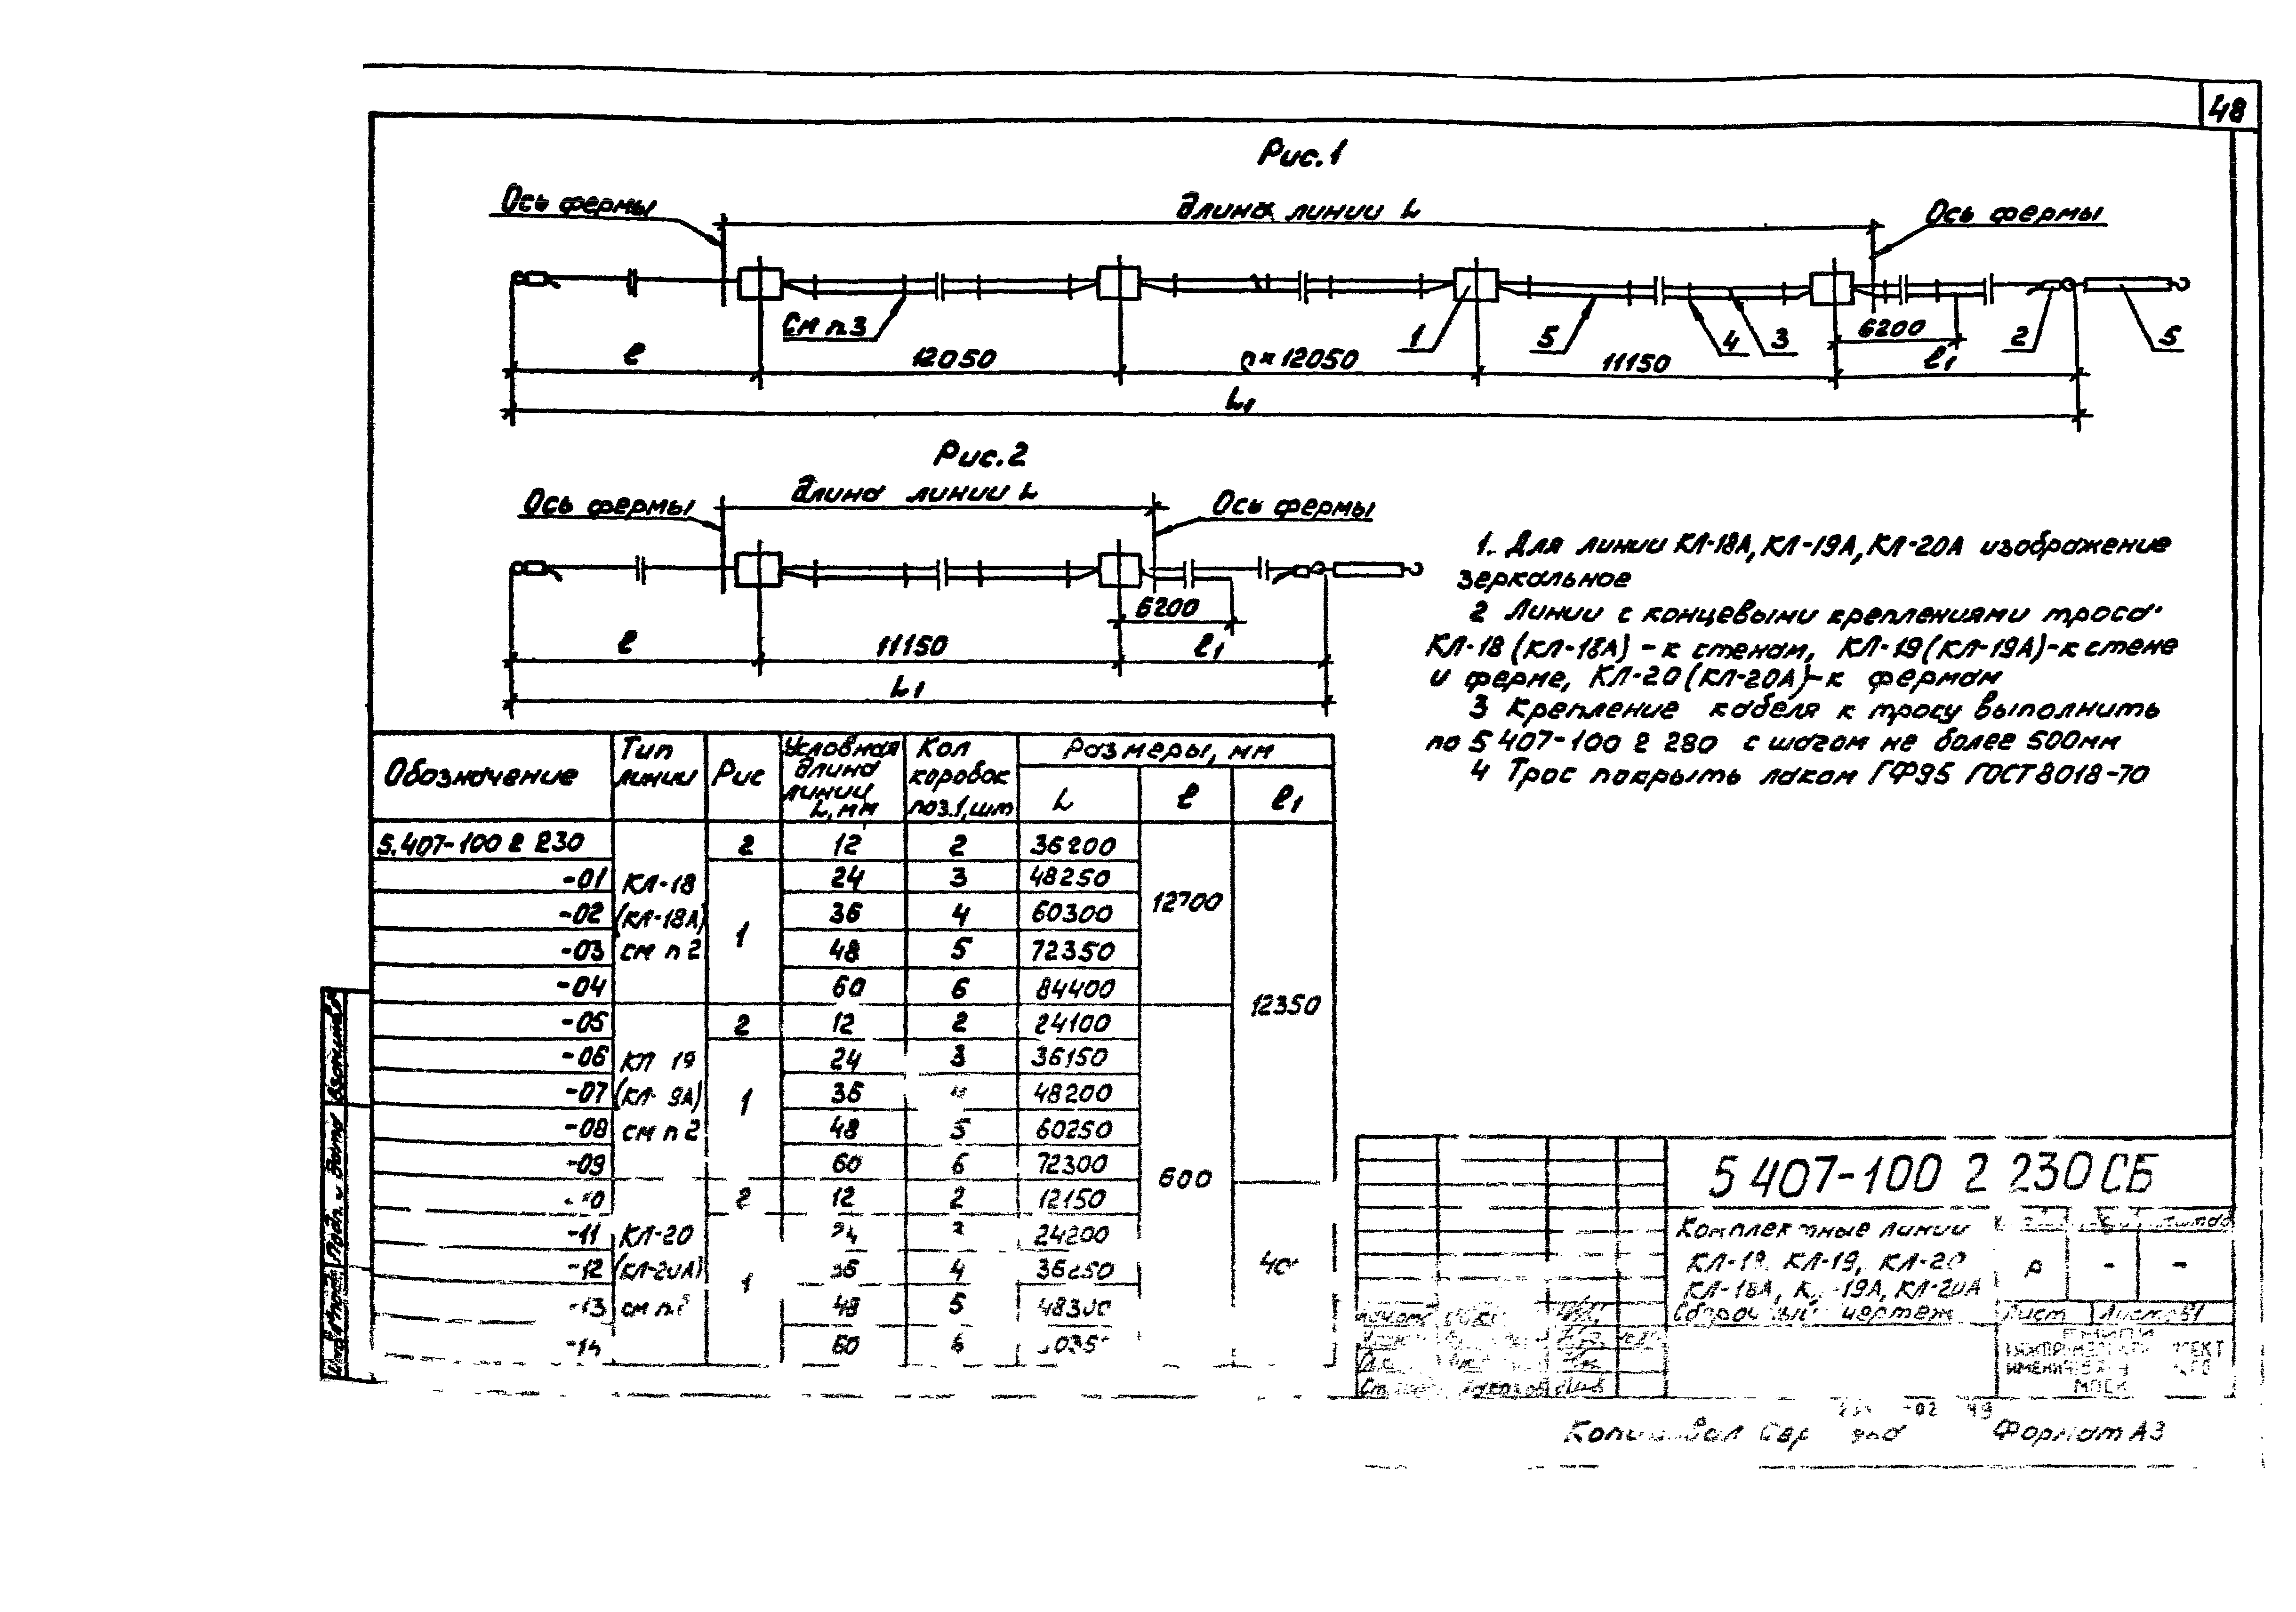 48
Рис.1
Ось фермы
Длина линии L
Ось фермы
См п.3
1
5
4
3
6200
2
5
ℓ
12050
n×12050
11150
ℓ1
L1
Рис.2
Ось фермы
Длина линии L
Ось фермы
6200
ℓ
11150
ℓ1
L1
1. Для линии КЛ-18А, КЛ-19А, КЛ-20А изображение
зеркальное
2 Линии с концевыми креплениями троса.
КЛ-18 (КЛ-18А) - к стенам, КЛ-19 (КЛ-19А)-к стене
и ферме, КЛ-20 (КЛ-20А)-к фермам
3 Крепление кабеля к тросу выполнить
по 5 407-100 2 280 с шагом не более 500мм
4 Трос покрыть лаком ГФ95 ГОСТ 8018-70
Обозначение Тип линии Рис Условная длина линии L, мм Кол коробок поз.1, шт Размеры, мм
L ℓ ℓ1
5.407-100 2 230 2 12 2 36200
-01 КЛ-18 24 3 48250
12700
-02 (КЛ-18А) 1 36 4 60300
-03 см п 2 48 5 72350
-04 60 6 84400
12350
-05 2 12 2 24100
-06 КЛ 19 24 3 36150
-07 (КЛ- 9А) 1 36 48200
-08 см п 2 48 5 60250
-09 60 6 72300
600
2 12 2 12150
-11 КЛ-20 24 24200
-12 (КЛ-20А) 1 36 4 36250
-13 см п. 48 5 48300
-14 60 6
Взаминв
Подп. и дата
5 407-100 2 230 СБ
Комплектные линии
КЛ-18, КЛ-19, КЛ-20
КЛ-18А, К -19А, КЛ-20А
Сборочный чертеж
Р - -
Лист Листов 1
Копировал
Формат А3